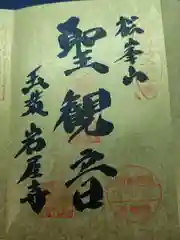 松峯山
聖観音
玉蔵 岩屋寺